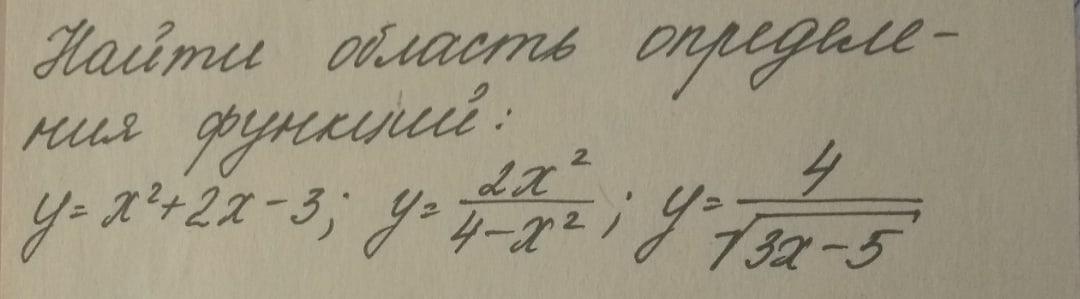 Найти область определе-
ния функций:
y = x² + 2x - 3; y = 2x²/(4 - x²); y = 4/√(3x - 5)